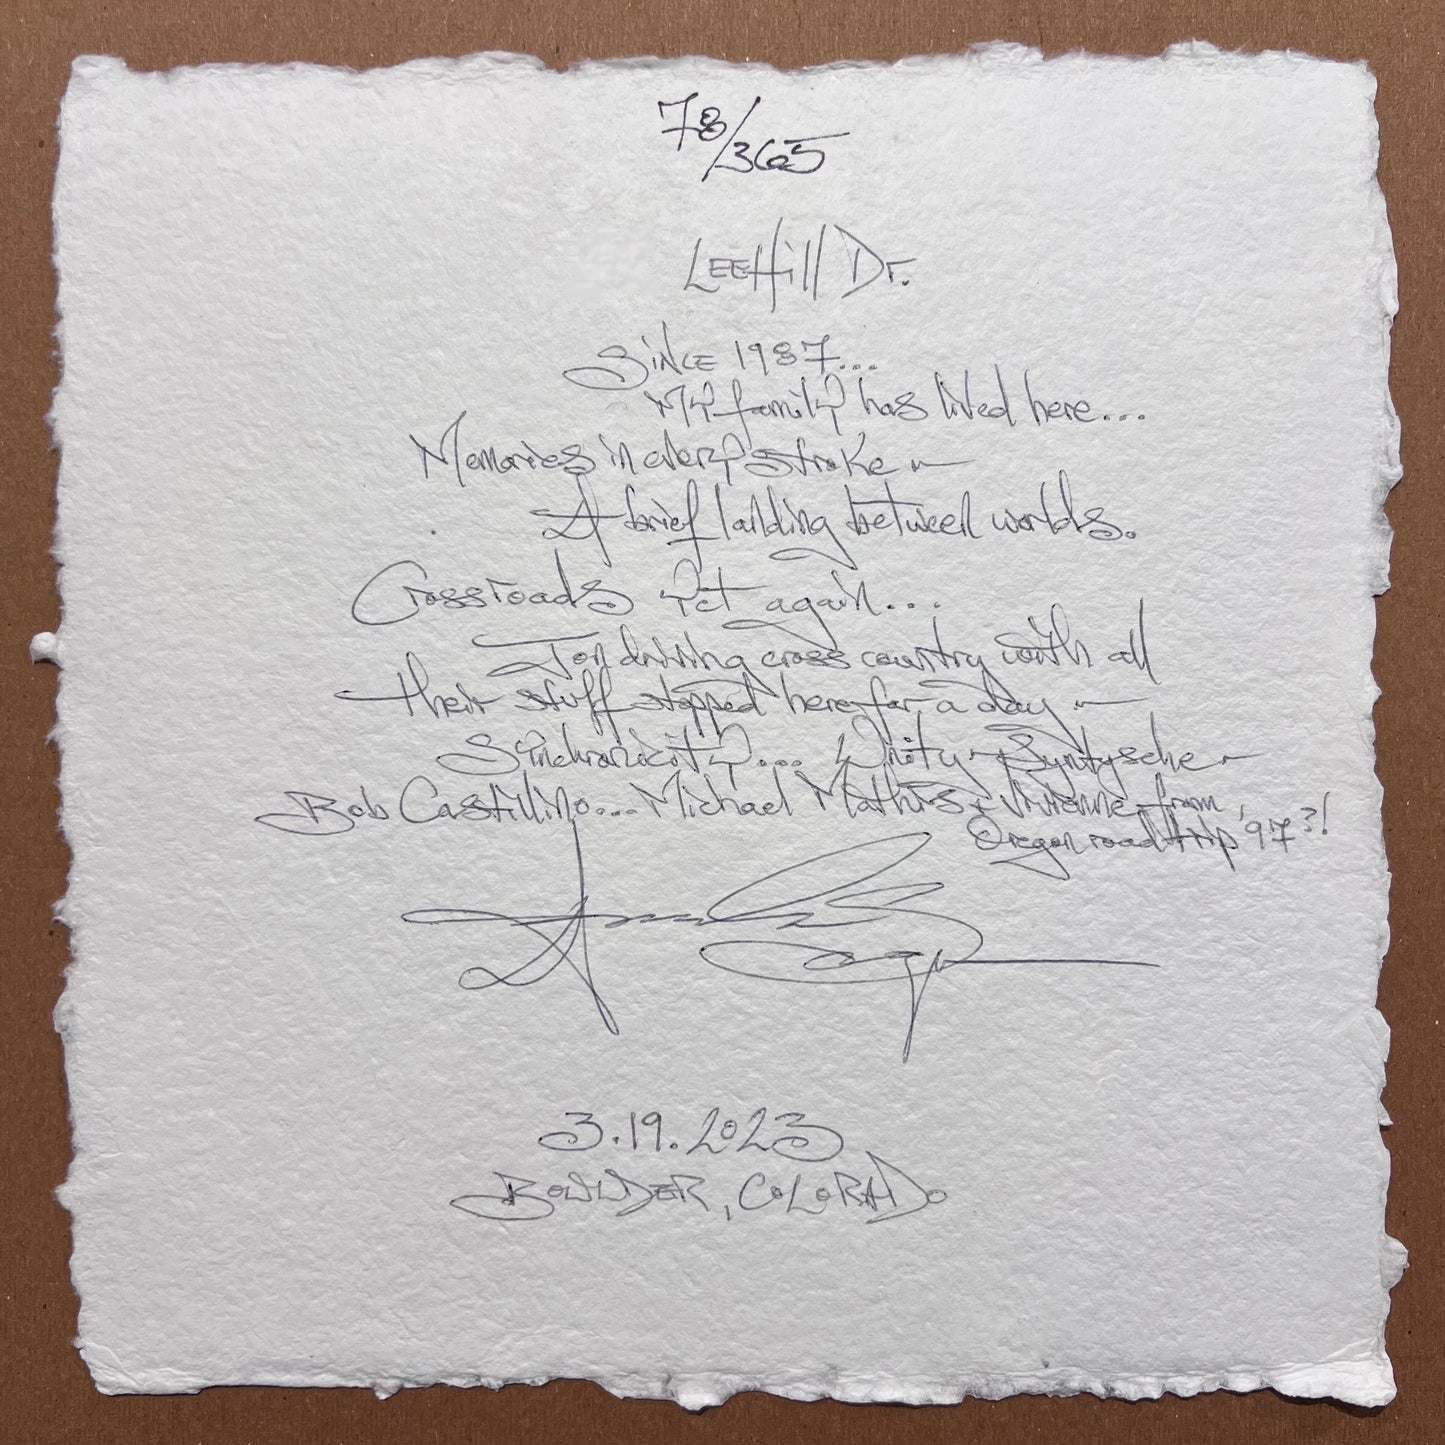 78/365
LEEHill Dr.
SiNCE 1987...
MY family has lived here...
Memories in every stroke ~
A brief landing between worlds.
Crossroads Yet again...
Jon driving cross country with all
their stuff stopped here for a day ~
Synchronicity... Unity ~
Bob Castillino... Michael Mathis & Vivienne from
Oregon road trip '97?!
3.19.2023
BOWLDER, COLORADO